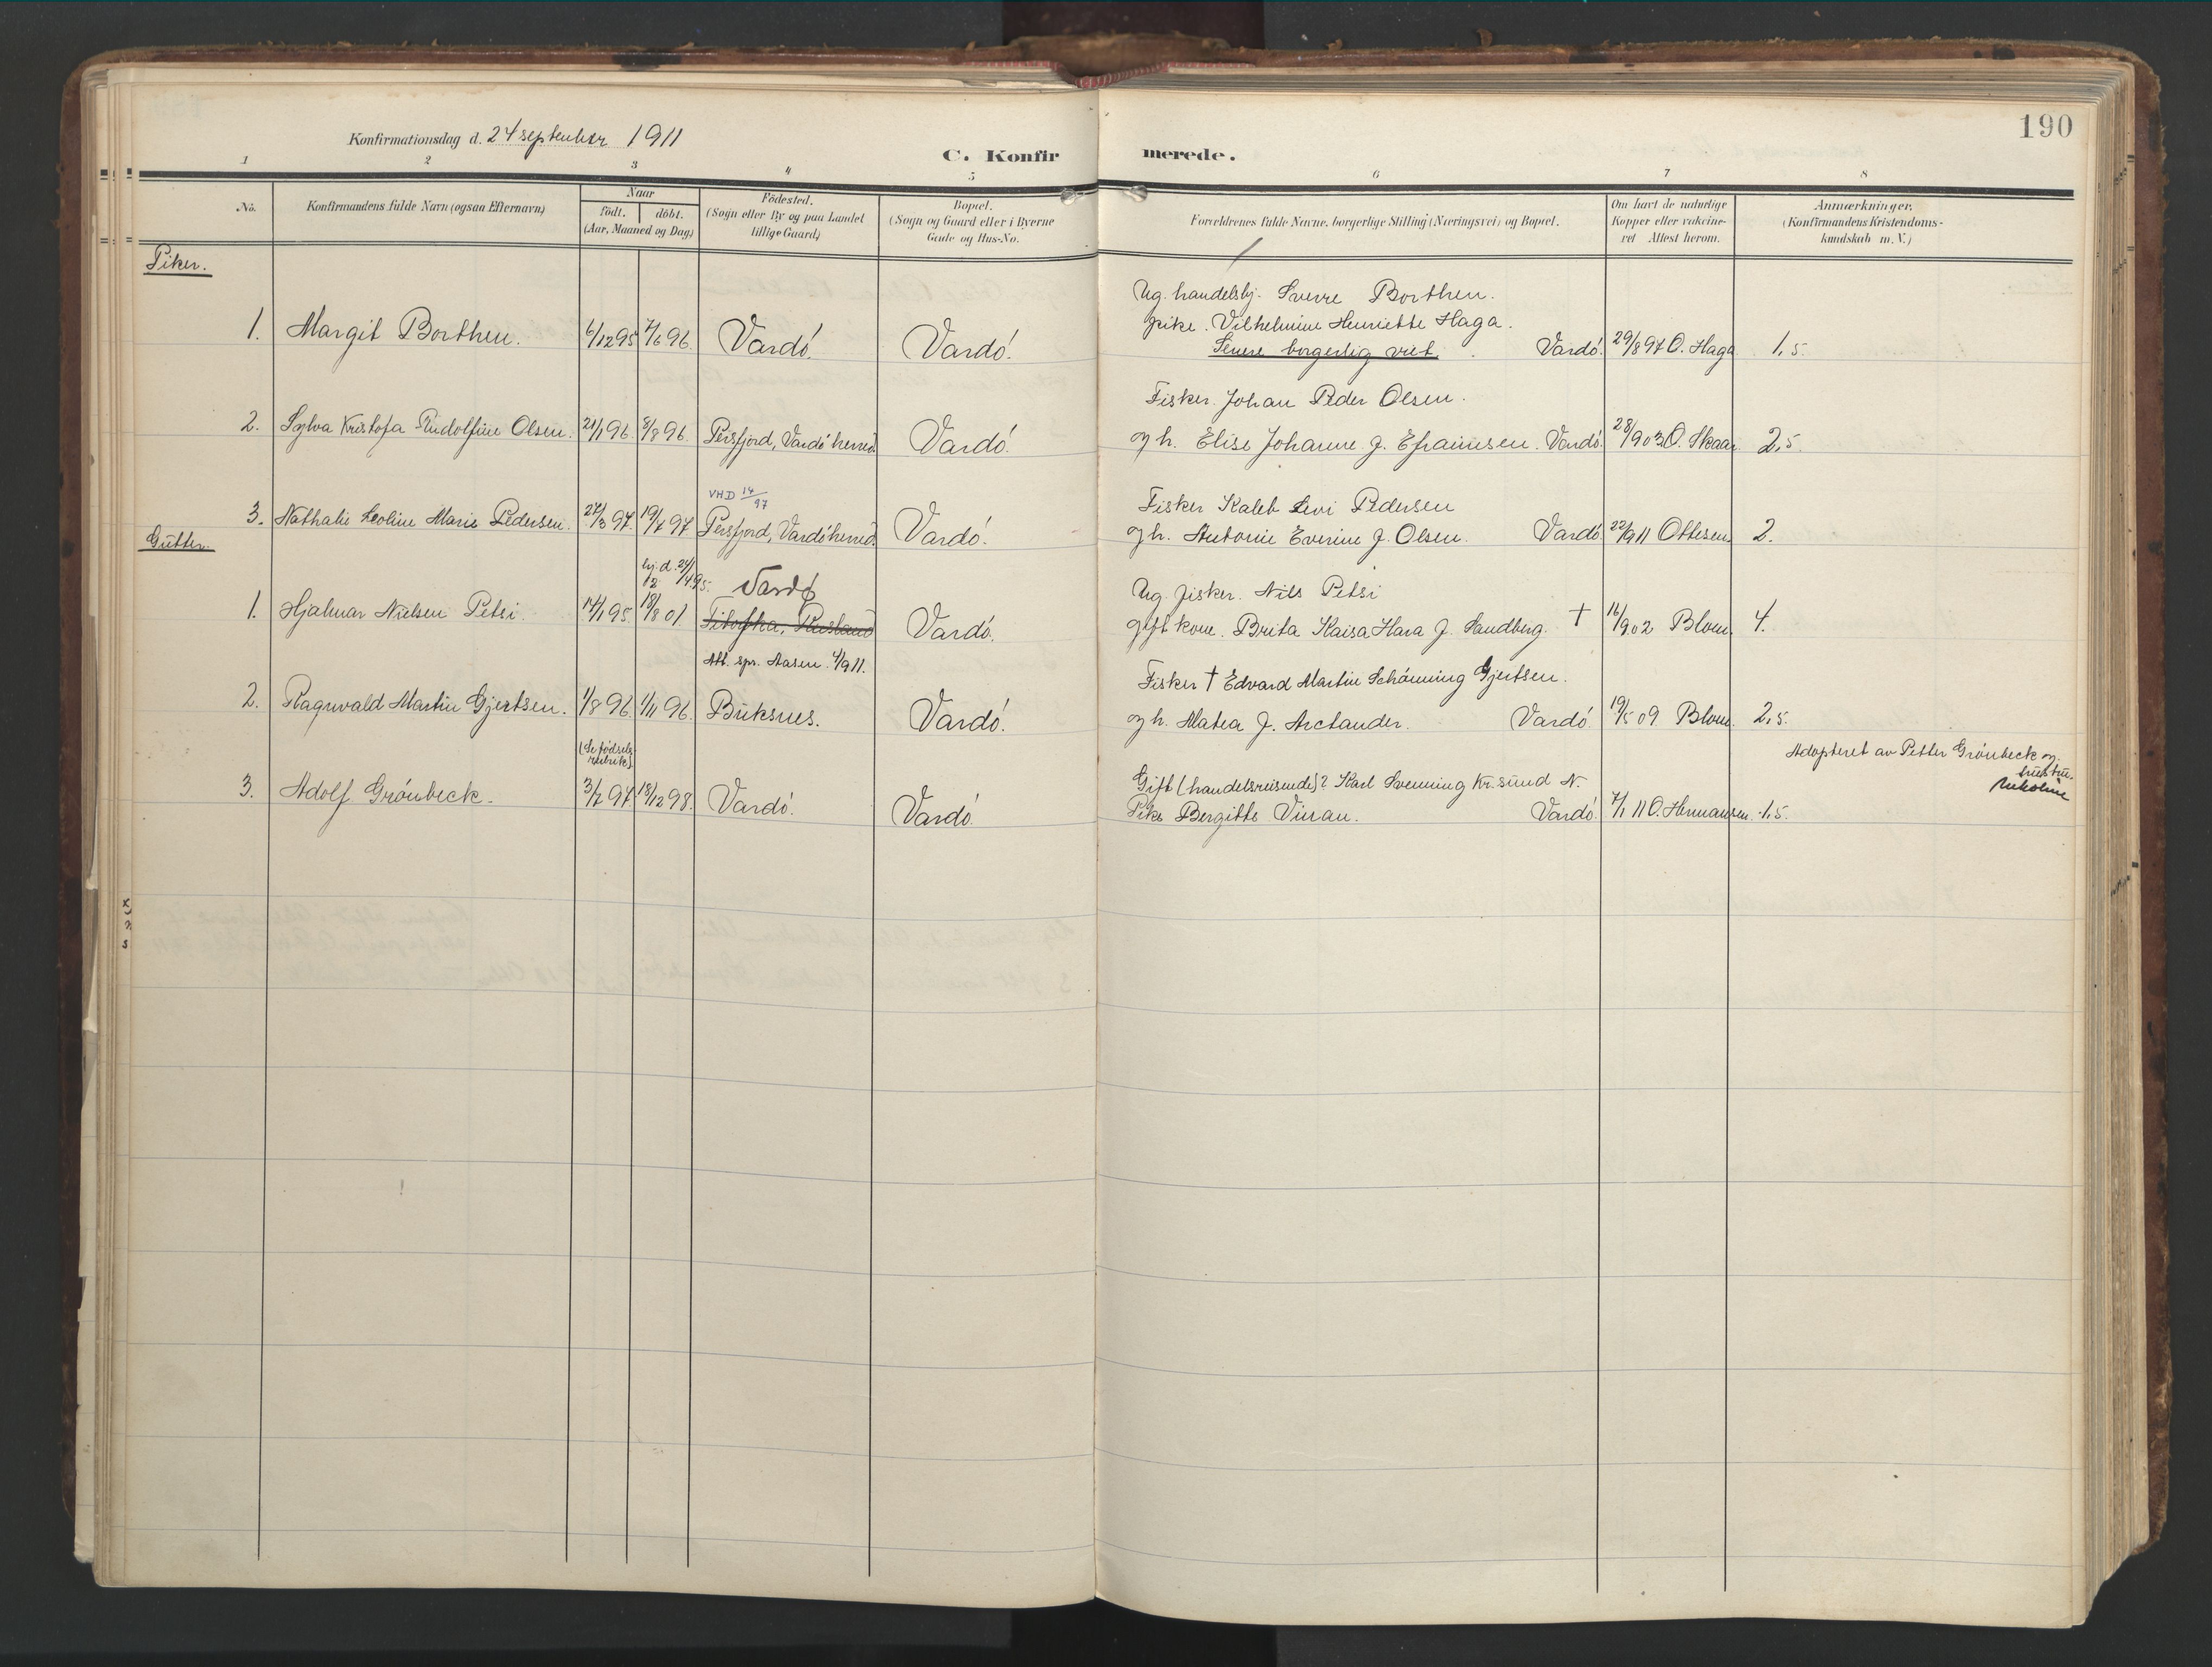 190
Konfirmationsdag d. 24 september 1911
C. Konfirmerede.
1 2 3 4 5 6 7 8
No.
Konfirmandens fulde Navn (ogsaa Efternavn)
Naar
födt. döbt.
(Aar, Maaned og Dag)
Födested.
(Sogn eller By og paa Landet
tillige Gaard)
Bopæl.
(Sogn og Gaard eller i Byerne
Gade og Hus-No.
Forældrenes fulde Navne, borgerlige Stilling (Næringsvei) og Bopæl.
Om havt de naturlige
Kopper eller vakcine-
ret Attest herom.
Anmærkninger.
(Konfirmandens Kristendoms-
kundskab m. V.)
Piker.
Ug. handelsbj. Sverre Borthen.
1. Margit Borthen. 6/12 95 7/6 96. Vardö. Vardö. pike. Vilhelmine Henriette Haga.
Senere borgerlig viet. Vardö. 29/8 97 O. Haga 1,5.
Fisker. Johan Peder Olsen.
2. Sylva Kristofa Rudolfine Olsen. 21/1 96. 8/8 96. Persfjord, Vardö herred. Vardö. og h. Elise Johanne f. Efraimsen. Vardö. 28/9 03 O. Skaar. 2,5.
VHD 14/97
Fisker Kaleb Levi Pedersen
3. Nathalie Leoline Marie Pedersen. 27/3 97. 19/7 97 Persfjord, Vardöherred. Vardö. og h. Antonie Evenine f. Olsen. Vardö. 22/9 11 Ottesen. 2.
Gutter.
hj. d. 24/4 95. Vardø
Ug. fisker. Nils Petsi
1. Hjalmar Nielsen Petsi. 14/1 95. 18/8 01. Titofka, Rusland Vardö. gift kone. Brita Kaisa Hara f. Sandberg. † 16/9 02 Blom. 4.
Att. spr. Aasen. 4/9 11.
Fisker † Edvard Martin Schönning Gjertsen.
2. Ragnvald Martin Gjertsen. 1/8 96. 1/11 96. Buksnes. Vardö. og h. Matea f. Arctander. Vardö. 19/5 09 Blom. 2,5.
(Se fødsels-
rubrik)
Adopteret av Petter Grönbeck og
hustru
Nikoline
Gift (handelsreisende)? Karl Svenning Kr. sund N.
3. Adolf Grönbeck. 3/7 97. 18/12 98. Vardö. Vardö. Pike Bergitte Vinan. Vardö. 7/1 11 O. Hermansen. 1,5.